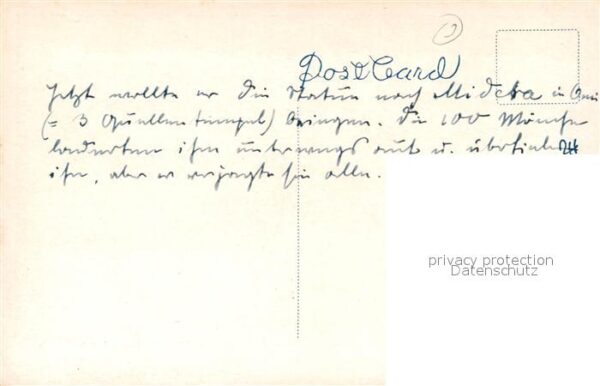 3
Post Card
Jetzt wollte er die Statue nach Midera in
(= 3 Quellentempel) bringen. Die 100 Mönche
lauerten ihm unterwegs auf u. überfielen
ihn, aber er verjagte sie alle.
privacy protection
Datenschutz